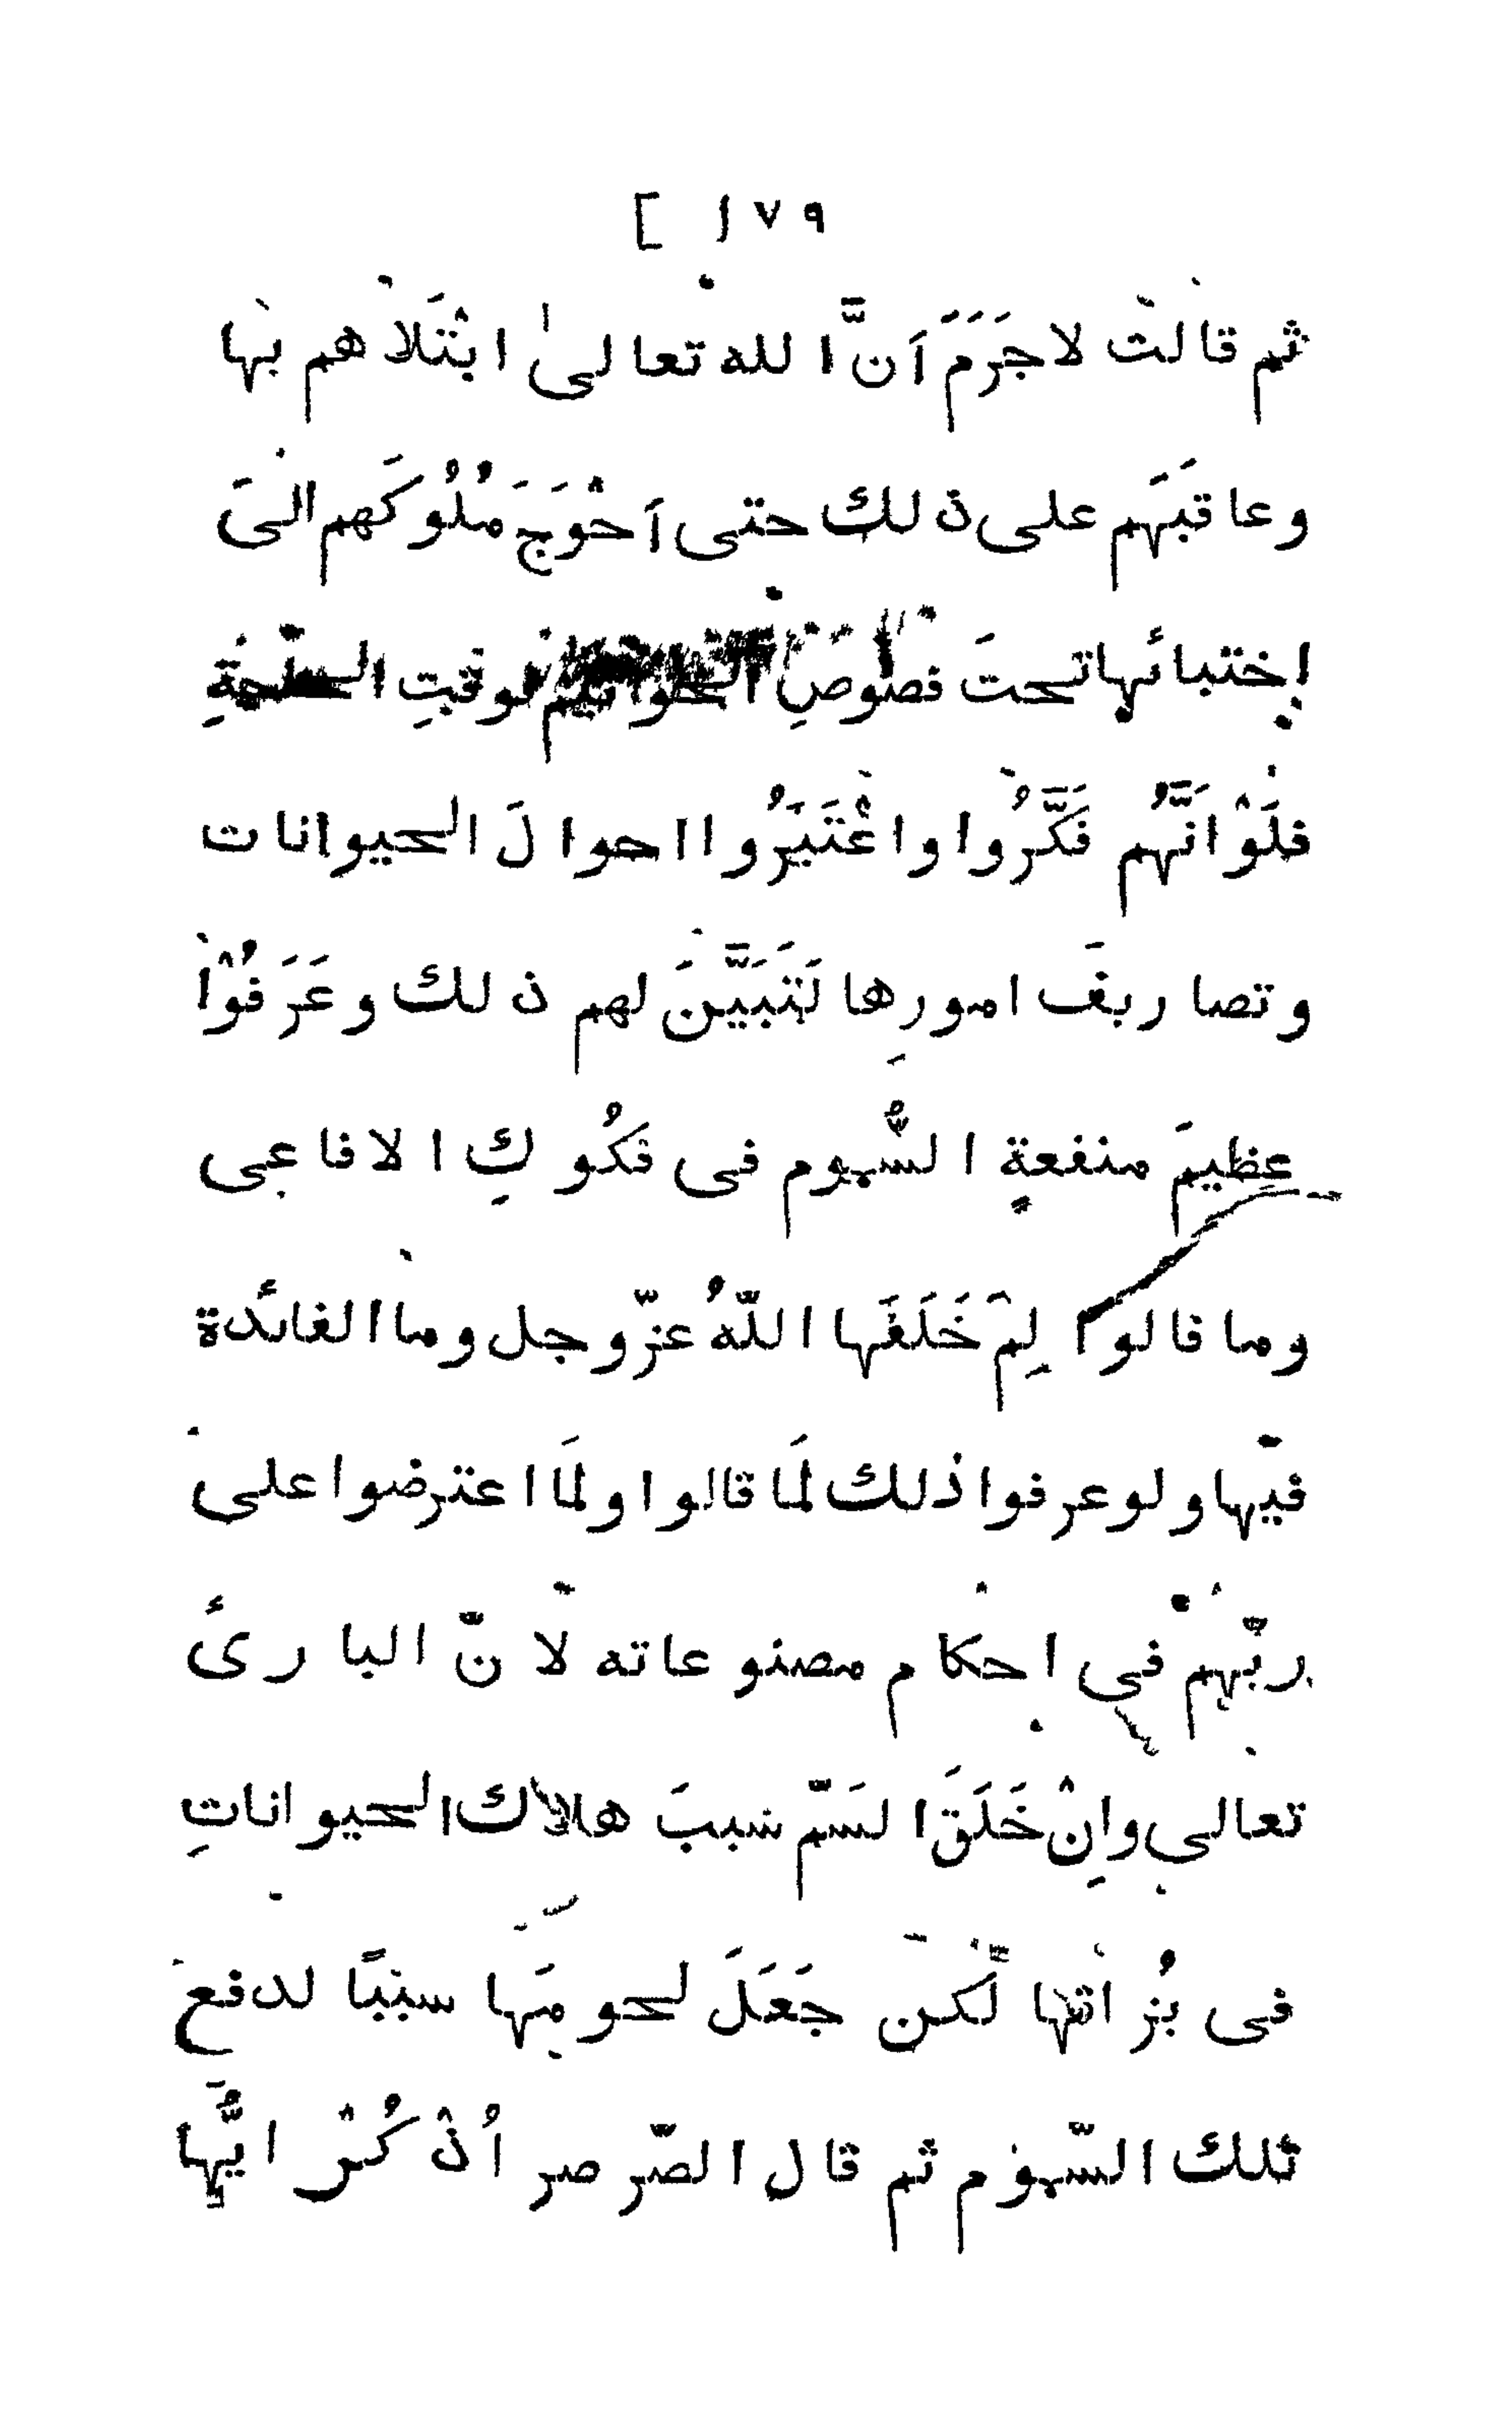 [ ١٧٩
ثم قالت لا جَرَمَ اَنَّ الله تعالىٰ ابْتَلاهم بها
وعاقبَهم على ذلك حتى اَحْوَجَ مُلُوكَهم الىَ
اِختبائها تحتَ فصُوصِ الخواتيم لوقتِ الحاجةِ
فلَوْ انَّهُم فَكَّرُوا واعْتَبَرُوا احوالَ الحيوانات
وتصاريفَ امورِها لَتَبَيَّنَ لهم ذلك وعَرَفُوْا
عظِيمَ منفعةِ السُّموم فى فَكُوكِ الافاعى
وما قالوا لِمَ خَلَقَها اللّٰهُ عزّ وجل وما الفائدة
فيها ولو عرفوا ذلك لَمَا قالوا ولَمَا اعترضوا على
ربّهم فى احكام مصنوعاته لانّ البارئ
تعالى واِنْ خَلَقَ السَمّ سببَ هلاك الحيواناتِ
فى بُزاقها لكنّ جَعَلَ لحومَها سببًا لدفع
تلك السّموم ثم قال الصّرصر اُذْكُرْ ايُّها